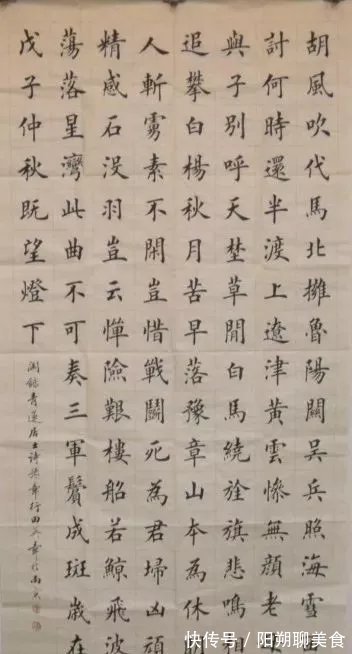 胡風吹代馬北擁魯陽關吳兵照海雪西
討何時還半渡上遼津黃雲慘無顏老
與子別呼天埜草間白馬繞旌旗悲鳴
追攀白楊秋月苦早落豫章山本為休
人斬虜素不閑豈惜戰鬬死為君埽凶頑
精感石没羽豈云憚險艱樓船若鯨飛波
蕩落星灣此曲不可奏三軍鬢成斑歲在
戊子仲秋既望燈下
錄青蓮居士詩豫章行田
快传号 / 阳朔聊美食